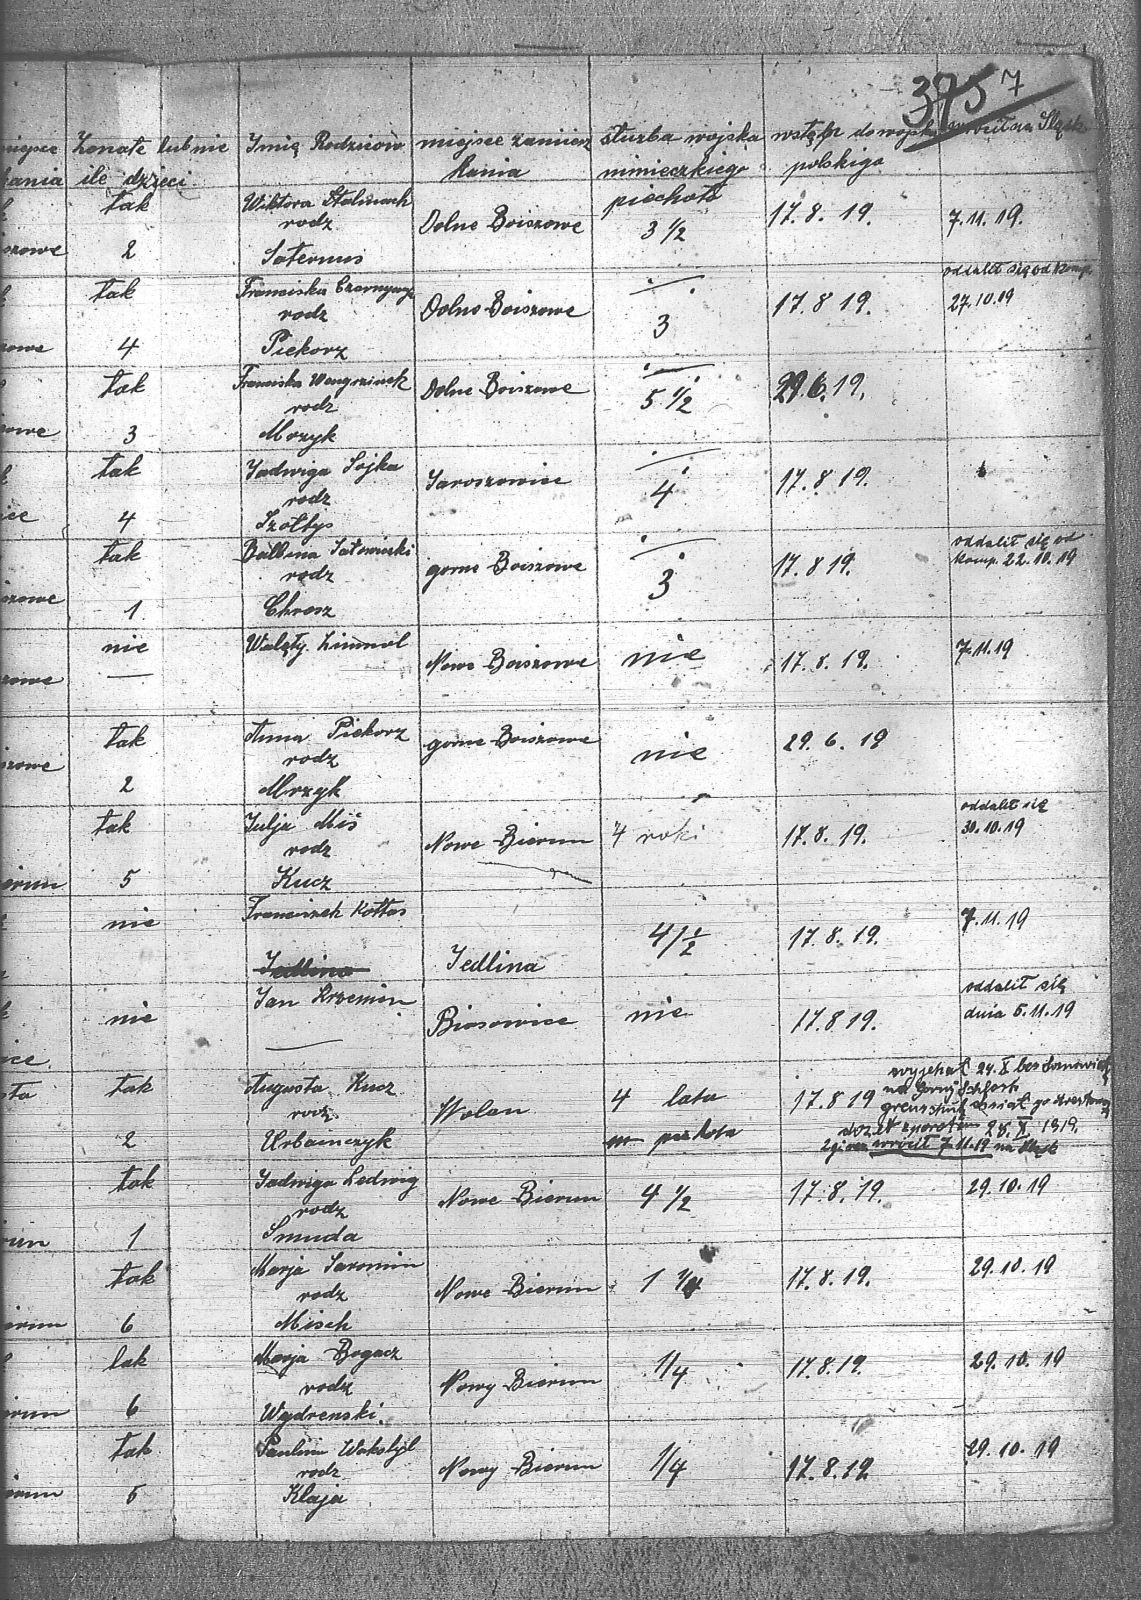 375 7
miejsce Żonate lub nie Imię Rodziców miejsce zamiesz służba wojska wstęp do wojska wrócił na Śląsk
kania ile dzieci kania nimieczkiego polskigo
piechota
tak Wiktora Stalmach Dolne Boiszowe 17.8.19. 7.11.19.
rodz 3 1/2
szowe 2 Saternus
oddalił się od komp.
tak Franciska Dolne Boiszowe 17.8 19. 27.10.19
rodz 3
zowe 4 Piekorz
tak Franciska Wengrzinek Dolne Boiszowe 5 1/2 29.6.19.
rodz
zowe 3 Mrzyk
tak Jadwiga Sojka Jaroszowice 4 17.8 19.
rodz
ice 4 Szołtys
oddalił się od
tak Balbina gorne Boiszowe 3 17.8 19. komp. 22.10.19
rodz
szowe 1 Chrosz
nie Walęty Nowe Boiszowe nie 17.8.19. 7.11.19
zowe —
tak Anna Piekorz gorne Boiszowe nie 29.6.19
rodz
szowe 2 Mrzyk
oddalił się
tak Julja Miś Nowe Bierun 4 roki 17.8.19. 30.10.19
rodz
erun 5 Kucz
nie Franciszek Kołtas 4 1/2 17.8.19. 7.11.19
Jedlina Jedlina
oddalił się
nie Jan Krzemin Biasowice nie 17.8 19. dnia 5.11.19
ice —
wyjehał 24.X
tak Augusta Kucz Wolan 4 lata 17.8 19 na Gorny
rodz
2 Urbainczyk piechota 28.X.1919.
wrócił 7.11.19 na Śląsk
tak Jadwiga Ledwig Nowe Bierun 4 1/2 17.8.19. 29.10.19
rodz
run 1 Smuda
tak Marja Jaromin Nowe Bierun 1 1/4 17.8.19. 29.10.19
rodz
erun 6 Misch
tak Marja Bogacz Nowy Bierun 1/4 17.8.19. 29.10.19
rodz
erun 6 Wydrenski.
tak Paulina Nowy Bierun 1/4 17.8.19 29.10.19
rodz
erun 5 Klaja